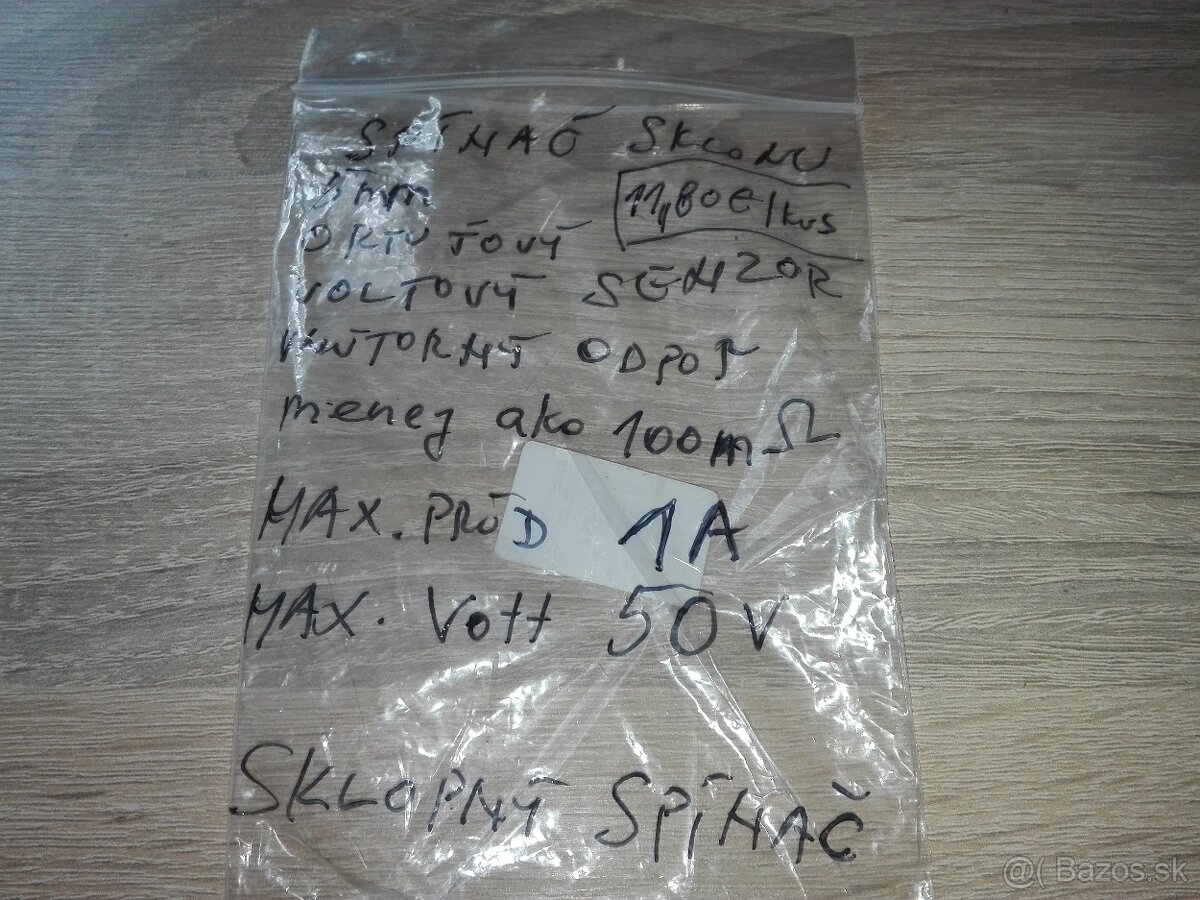 SPÍNAČ SKLONU
5mm 11,80€/kus
ORTUŤOVÝ
VOLTOVÝ SENZOR
VNÚTORNÝ ODPOR
menej ako 100mΩ
MAX. PRÚD 1A
MAX. Vott 50V
SKLOPNÝ SPÍNAČ
@( Bazos.sk